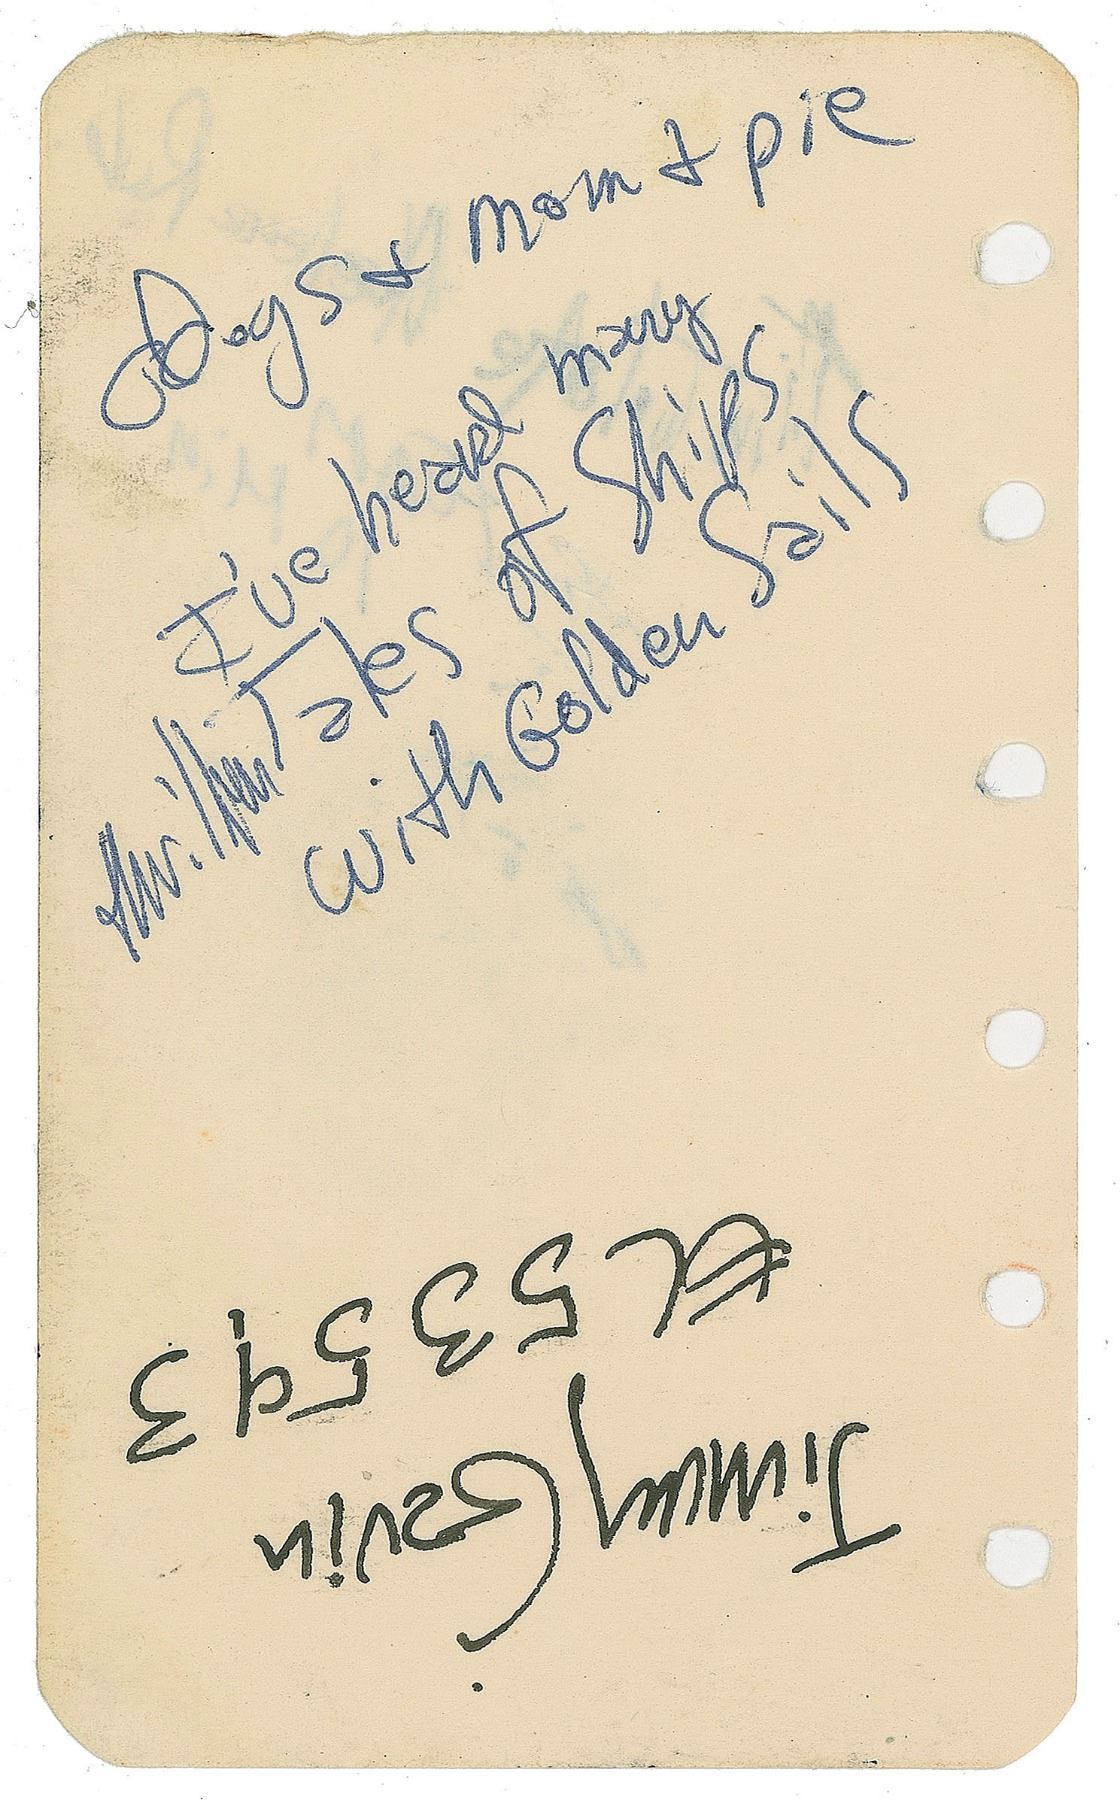 Dogs & mom & pie
I've heard many
Tales of Ships
with Golden Sails
Jimmy Gavin
EL 5 3 5 9 3